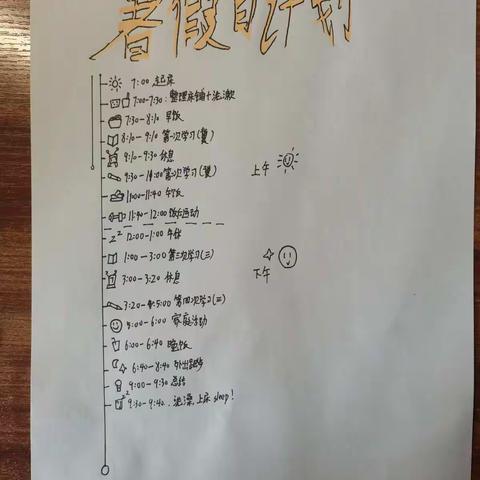 暑假自计划
7:00 起床
7:00-7:30:整理床铺+洗漱
7:30-8:10 早饭
8:10-9:10 第一次学习
9:10-9:30 休息
9:30-11:00 第二次学习
11:00-11:40 午饭
11:40-12:00 运动
上午
z z 12:00-1:00 午休
1:00-3:00 第三次学习(三)
3:00-3:20 休息
下午
3:20-5:00 第四次学习(三)
5:00-6:00 家庭活动
6:00-6:40 晚饭
6:40-8:40 外出跑步
9:00-9:30 总结
9:30-9:40.洗澡,上床 sleep!